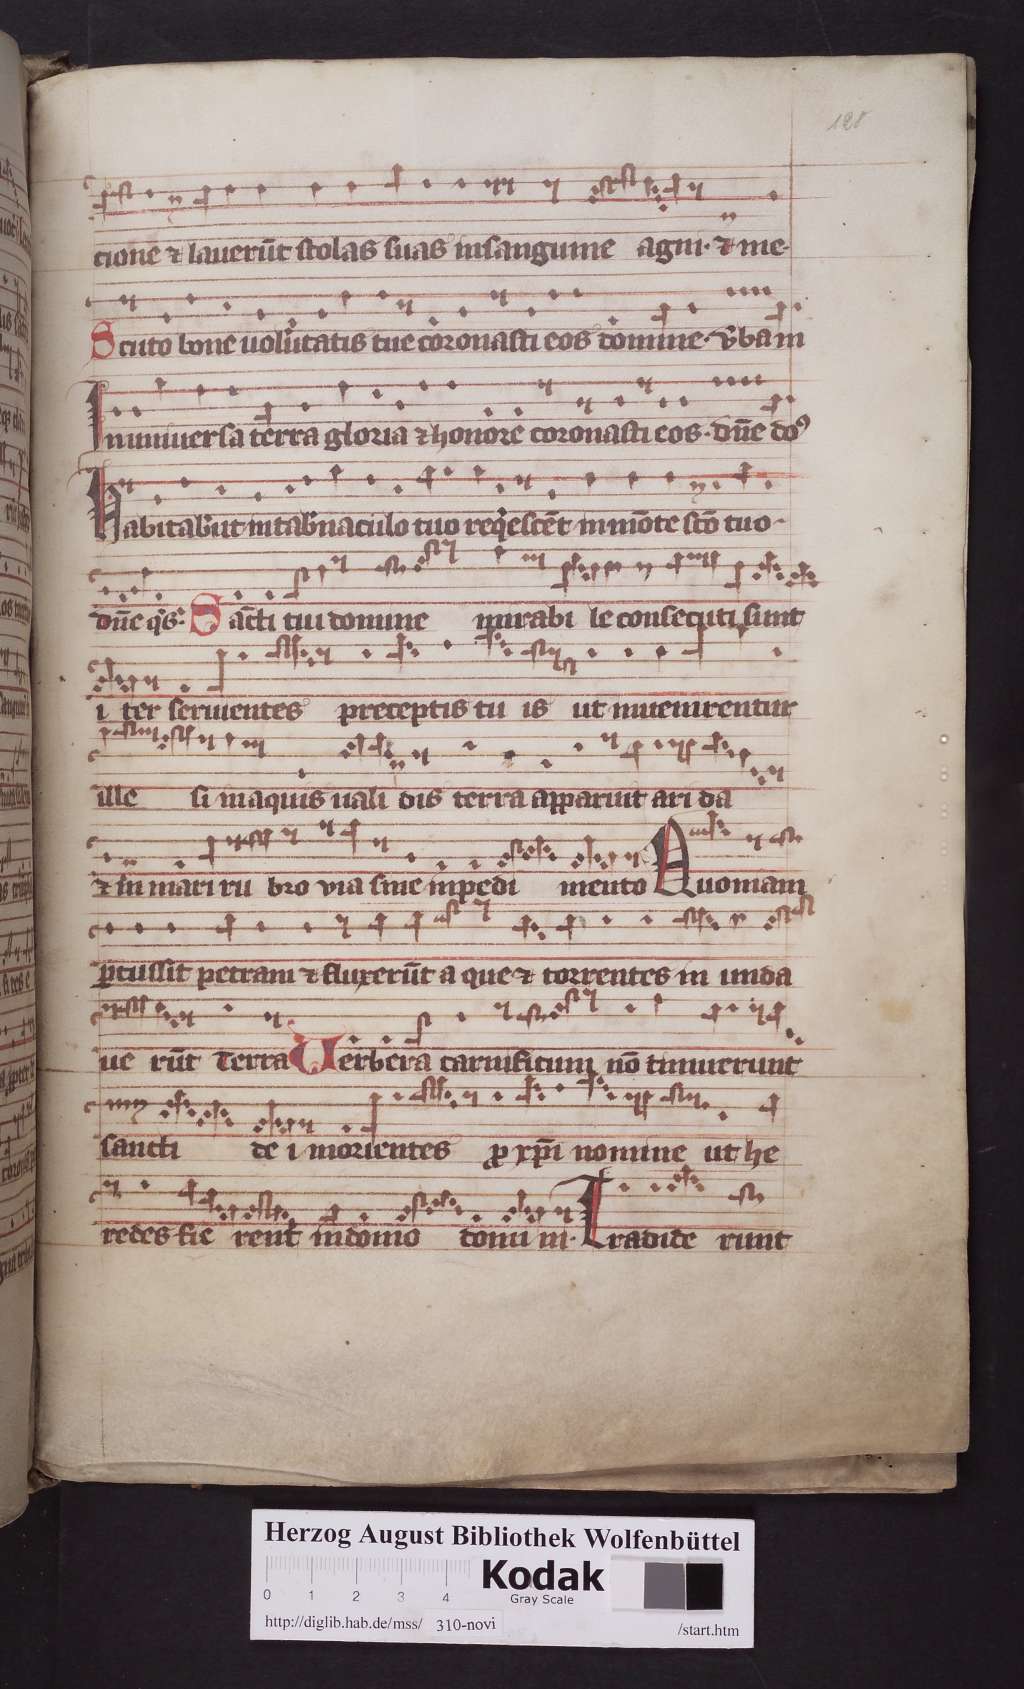 128
cione ⁊ lauerūt stolas suas insanguine agni· ⁊ me·
Scuto bone uolūtatis tue coronasti eos domine· v̄ba m
In uniuersa terra gloria ⁊ honore coronasti eos· dn̄e do⁹
Habitabūt in tab̄naculo tuo reqͥescēt in mōte sc̄o tuo·
dn̄e qͥs: Sac̄ti tui domine mirabi le consecuti sunt
i ter seruientes preceptis tu is ut inuenirentur
ille si inaquis uali dis terra apparuit ari da
⁊ in mari ru bro via sine inpedi mento Quoniam
ꝑcussit petram ⁊ fluxerūt a que ⁊ torrentes in unda
ue rūt Terra Uerbera carnificum nō timuerunt
sancti de i morientes ꝓ xp̄i nomine ut he
redes fie rent̄ indomo domi ni· Tradide runt
Herzog August Bibliothek Wolfenbüttel
0 1 2 3 4
Kodak
Gray Scale
http://diglib.hab.de/mss/ 310-novi /start.htm